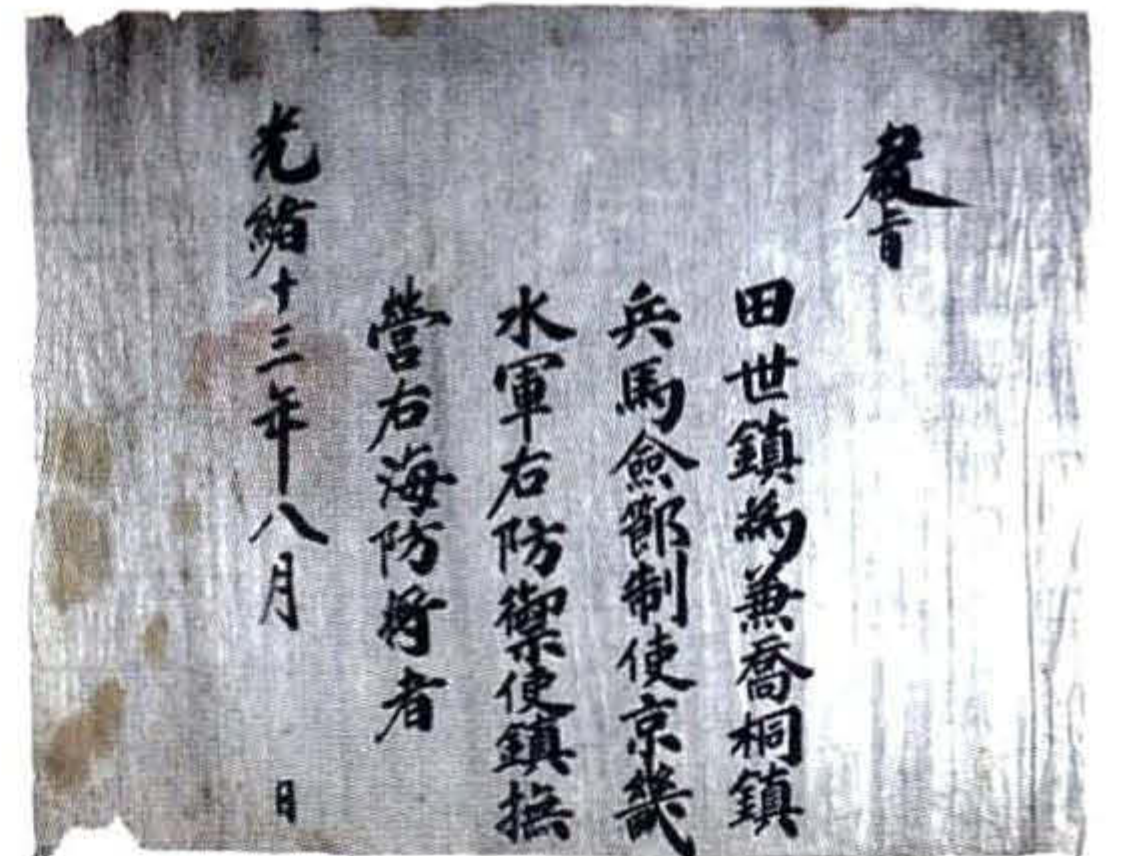 敎旨
田世鎮爲兼喬桐鎮
兵馬僉節制使京畿
水軍右防禦使鎮撫
營右海防將者
光緒十三年八月 日